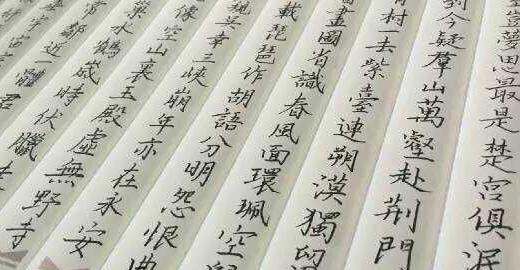 豈夢思最是楚宮俱泯
到今疑羣山萬壑赴荆門
村一去紫臺連朔漠獨
畫圖省識春風面環珮空
載琵琶作胡語分明怨恨曲
窺吳幸三峽崩年亦在永安
像空山裏玉殿虛無野寺
巢水鶴歲時伏臘
常鄰近一體君